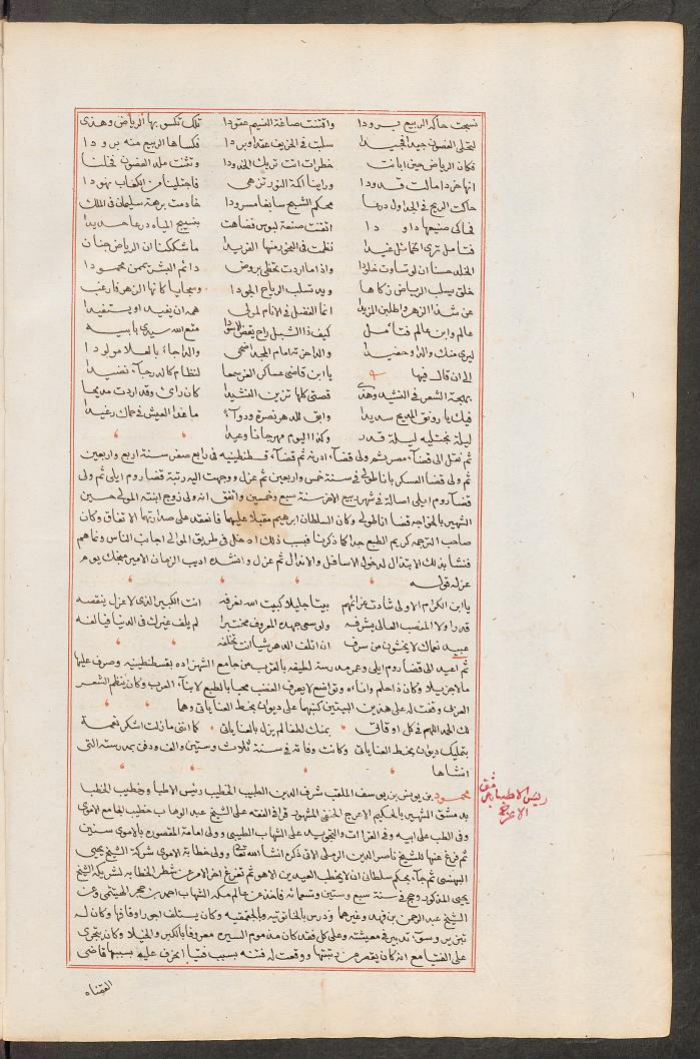 نسجت حاكة الربيع برودا واقتنت صاغة الغيم عقودا تلك تكسو بها الرياض وهذى
لتحلى الغصون جيدا فجيدا سلبت فى الخريف عقدا وبردا فكساها الربيع منه برودا
فكان الرياض حين ابانت خطرات انت تريك الخدودا وتثنت ملد الغصون فخلنا
انها خردا مالت قدودا وراينا اكمة النور تزهى فاجتلينا من الكعاب نهودا
حاكت الريح فى الجداول درعا محكم النسج سابغا مسرودا خادمت برهة سليمان فى الملك
فحاكى صنيعها داو دا اتقنت صنعة لبوس فضاهت بنسيج المياه درعا حديدا
فتامل ترى الخمائل غيدا نظمت فى النحور منها الفريدا ما شككنا ان الرياض جنان
الخلد حسنا ان لو تساوت خلودا واذا ما اردت تحظى بروض دائم البشر يممن محمودا
خلق يسلب الرياض زكاها ويد تسلب الرياح الجودا وسجايا كانها الزهر فارغب
عن شذا الزهر واطلبن المزيدا انما الفضل فى الانام لمولى همه ان يفيد او يستفيدا
عالم وابن عالم فتامل كيف ذا الشبل راح يقفو متع الله سيدى بابيه
ليرى منك والدا وحفيدا والداحزتما مام المجد اضحى والدا جاء بالعلا مولودا
الى ان قال فيها يا ابن قاضى عساكر الفرجمعا لنظام كالدر جاء نضيدا
بهجة الشعر فى النشيد وهذى قصتى كلها تزين النشيدا كان رائى وقد اردت مديحا
فيك يا رونق المديح سديدا وابق للدهر نصرة ودواء ما غدا العيش فى حماك رغيدا
ليلة تجتليه ليلة قدر وكذا اليوم مهرجانا وعيدا
ثم نقل الى قضاء مصر ثم ولى قضاء ادرنه ثم قضاء قسطنطينيه فى رابع صفر سنة اربع واربعين
ثم ولى قضا العسكر باناطولى فى سنة خمس واربعين ثم عزل ووجهت اليه رتبة قضا روم ايلى ثم ولى
قضاء روم ايلى اصالة فى شهر ربيع الاخر سنة سبع وخمسين واتفق انه ولى زوج ابنته المولى حسين
الشهير بالخواجه قضا اناطولى وكان السلطان ابراهيم مقبلا عليهما فانعقد على صدارتهما الاتفاق وكان
صاحب الترجمه كريم الطبع جدا كما ذكرنا فبسبب ذلك ادخل فى طريق الموالى اجانب الناس ونما هم
فنشا بذلك الابتذال لدخول الاسافل والانذال ثم عزل وانشده اديب الزمان الامير منجك يوم
عزله قوله
يا ابن الكرام الاولى شادت عزائمهم بيتا جليلا كبيت الله نعرفه انت الكبير الذى لا عزل ينقصه
قدرا ولا المنصب العالى يشرفه ولو سعى جهده المعروف مختبرا لم يلف غيرك فى الدنيا فيالفه
عبيد نعماك لا يخشون من سرف ان اتلف الدهر شيئا انت تخلفه
ثم اعيد الى قضا روم ايلى وعمر مدرسة لطيفه بالقرب من جامع الشهزاده بقسطنطينيه وصرف عليها
مالا جزيلا وكان ذا حلم واناءه وتواضع لا يعرف الغضب محبا بالطبع لابناء العرب وكان ينظم الشعر
العربى وقفت له على هذين البيتين كتبهما على ديوان بخط العناياتى وهما
لك الحمد اللهم فى كل اوقاتى بمنك لطفا لم يزل بالعناياتى كانى ما زلت اشكر نعمة
بتمليك ديوان بخط العناياتى وكانت وفاته فى سنة ثلاث وستين والف ودفن بمدرسته التى
انشاها
محمود بن يونس بن يوسف الملقب شرف الدين الطبيب الخطيب رئيس الاطبا وخطيب الخطبا
بدمشق الشهير بالحكيم الاعرج الحنفى المشهور قرا فى الفقه على الشيخ عبد الوهاب خطيب الجامع الاموى
وفى الطب على ابيه وفى القراات والتجويد على الشهاب الطيبى وولى امامة المقصوره بالاموى سنين
ثم فرغ عنها للشيخ ناصر الدين الرملى الاتى ذكره ان شا الله تعالى وولى خطابة الاموى شركة الشيخ يحيى
البهنسى ثم جاء بحكم سلطان ان لا يخطب العيدين الا هو ثم تفرغ اخر الامر عن شطر الخطابه لشريكه الشيخ
يحيى المذكور وحج فى سنة سبع وستين وتسعمائه فاخذ عن عالم مكه الشهاب احمد بن حجر الهيتمى وعن
الشيخ عبد الرحمن بن فهد وغيرهما ودرس بالخاتونيه وبالجقمقيه وكان يستلف اجور اوقافها وكان له
تبذير وسوء تدبير فى معيشته وعلى كل فقد كان مذموم السيره معروفا بالكبر والخيلا وكان يتجرى
على الفتيا مع انه كان يقصر عن رتبتها ووقعت له فتنه بسبب فتيا انحرف عليه بسببها قاضى
رئيس الاطبا بدمشق
الاعرج
القضاه